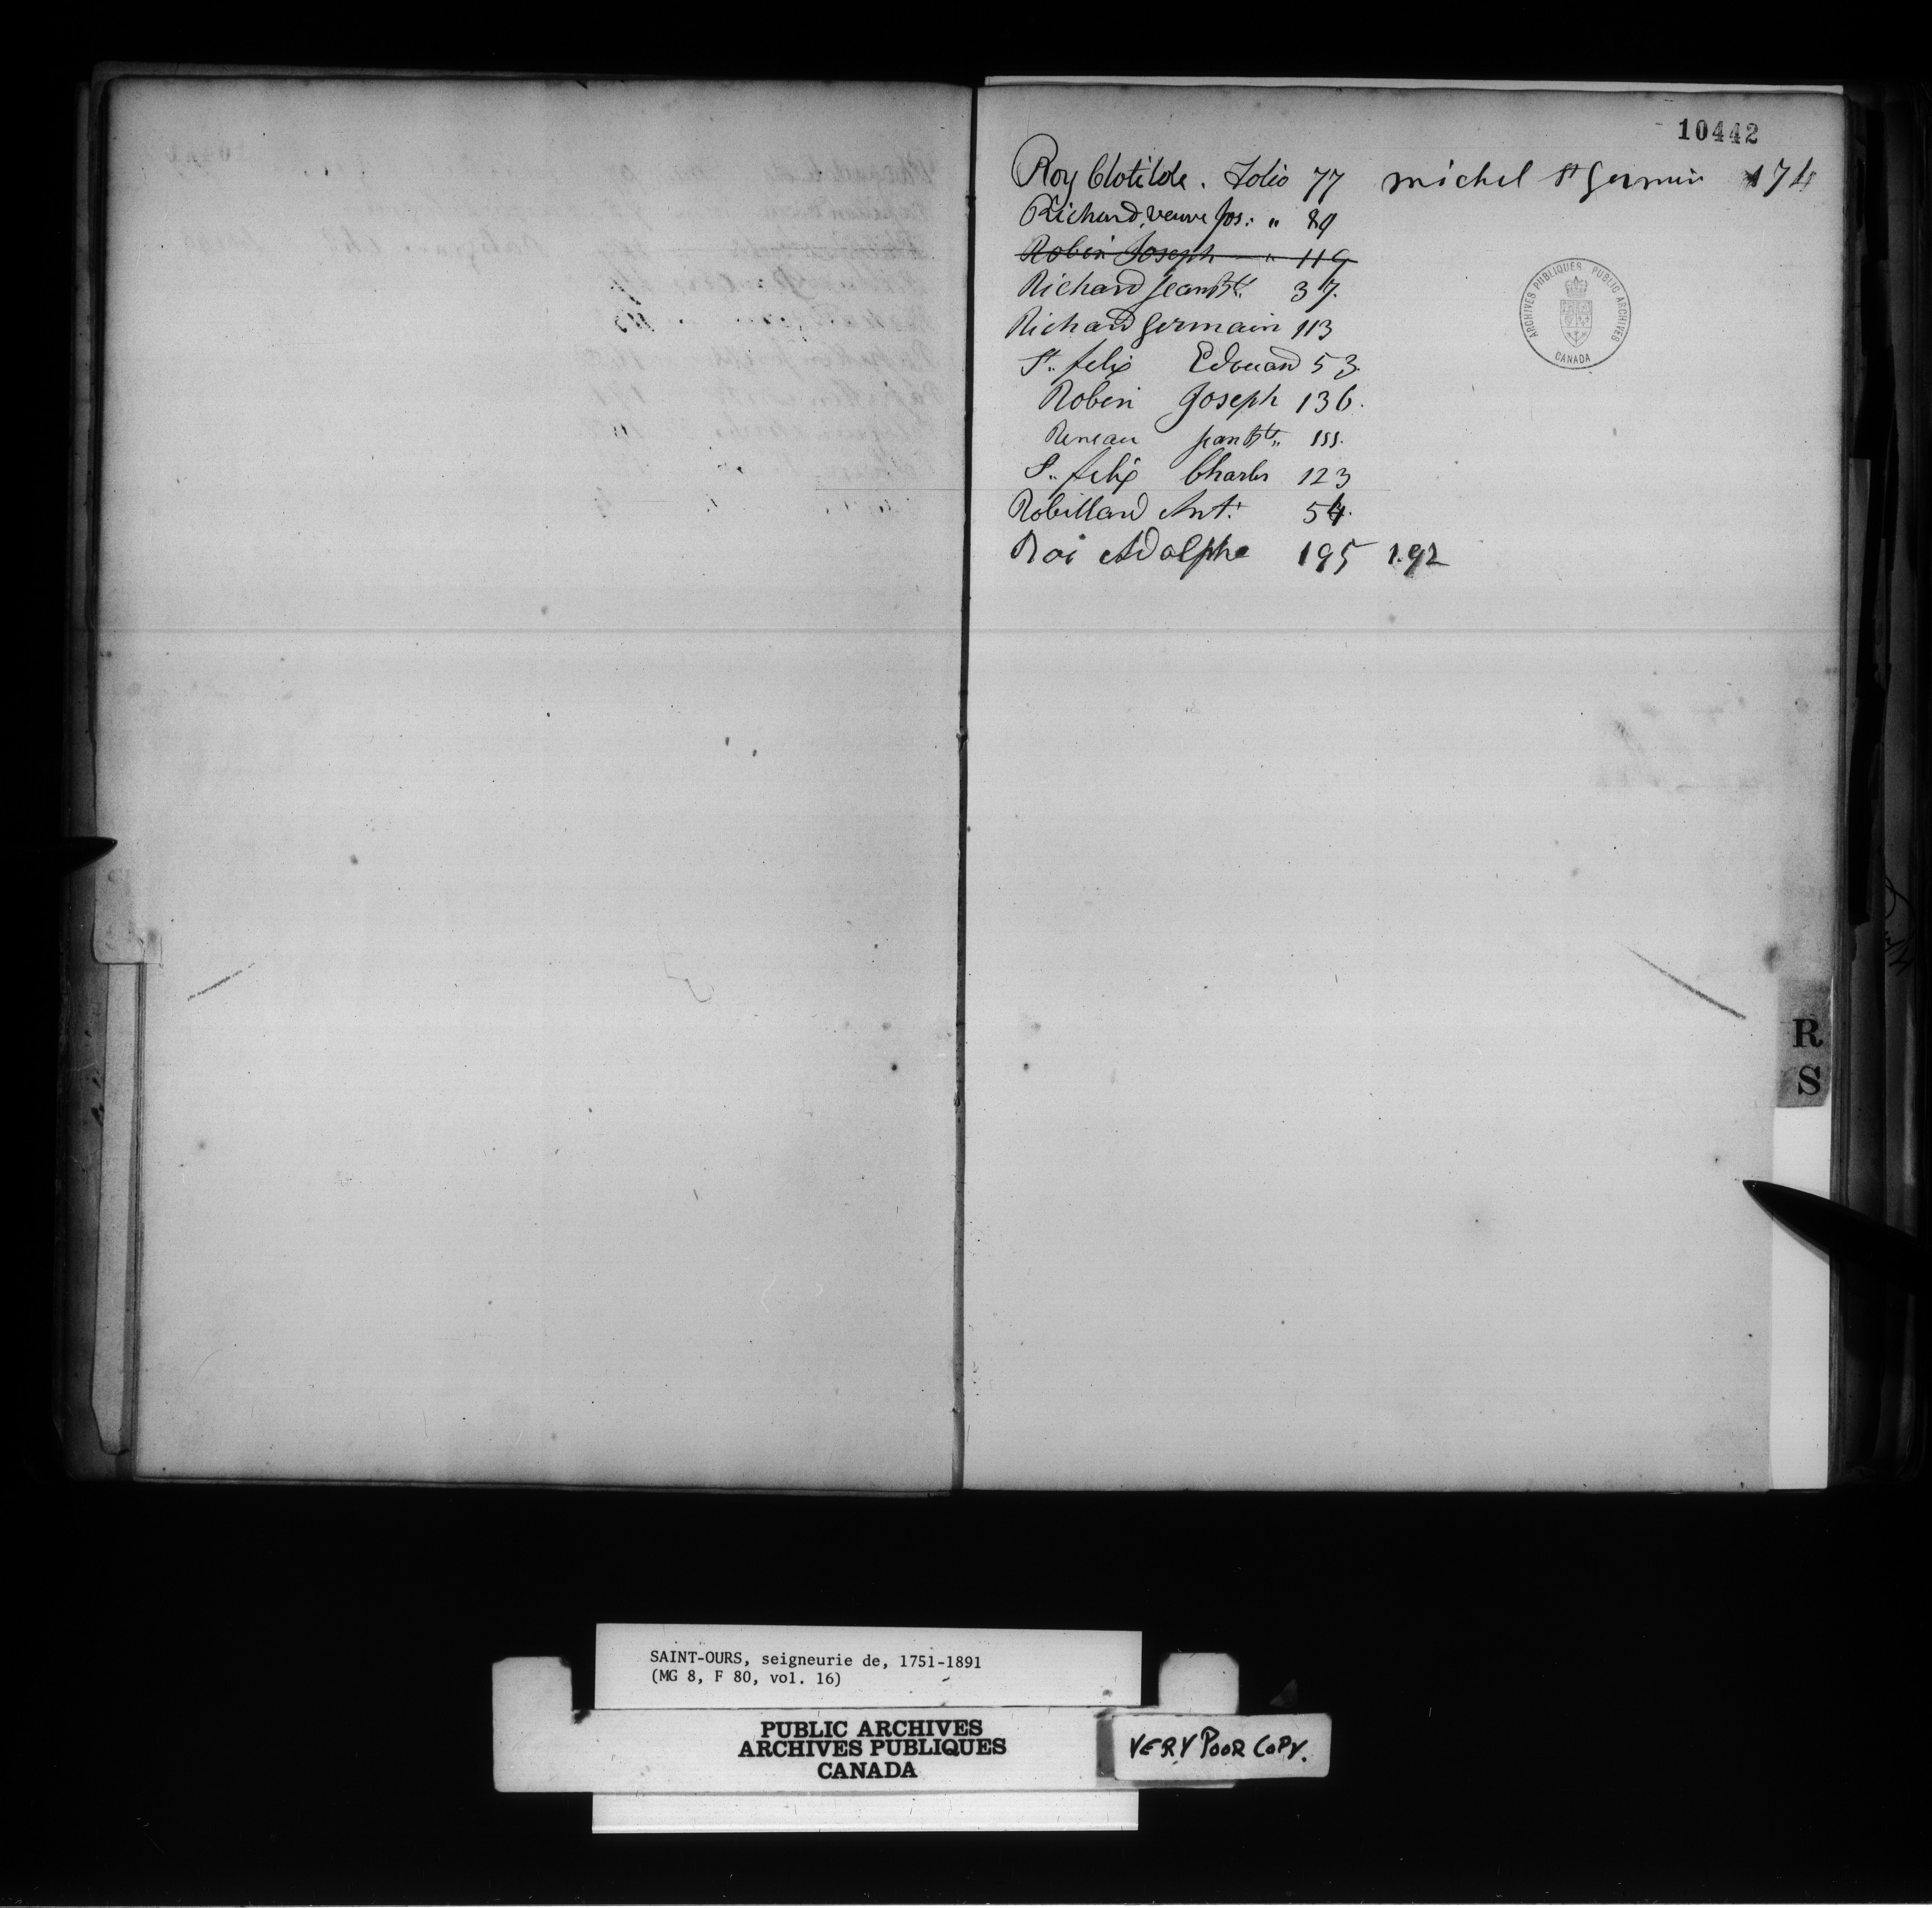 10442
Roy Clotilde. Folio 77 michel St Germain 174
Richard, veuve Jos: " 89
Robin Joseph — " 119
Richard Jean Bte. 37.
Richard Germain 113
St. felix Edouard 53.
Robin Joseph 136.
Reneau jean Bte. 155.
S.. felix Charles 123
Robillard Ant. 54.
Roi Adolphe 195 192
ARCHIVES PUBLIQUES PUBLIC ARCHIVES
CANADA
R
S
SAINT-OURS, seigneurie de, 1751-1891
(MG 8, F 80, vol. 16)
PUBLIC ARCHIVES
ARCHIVES PUBLIQUES
CANADA
VERY POOR COPY.